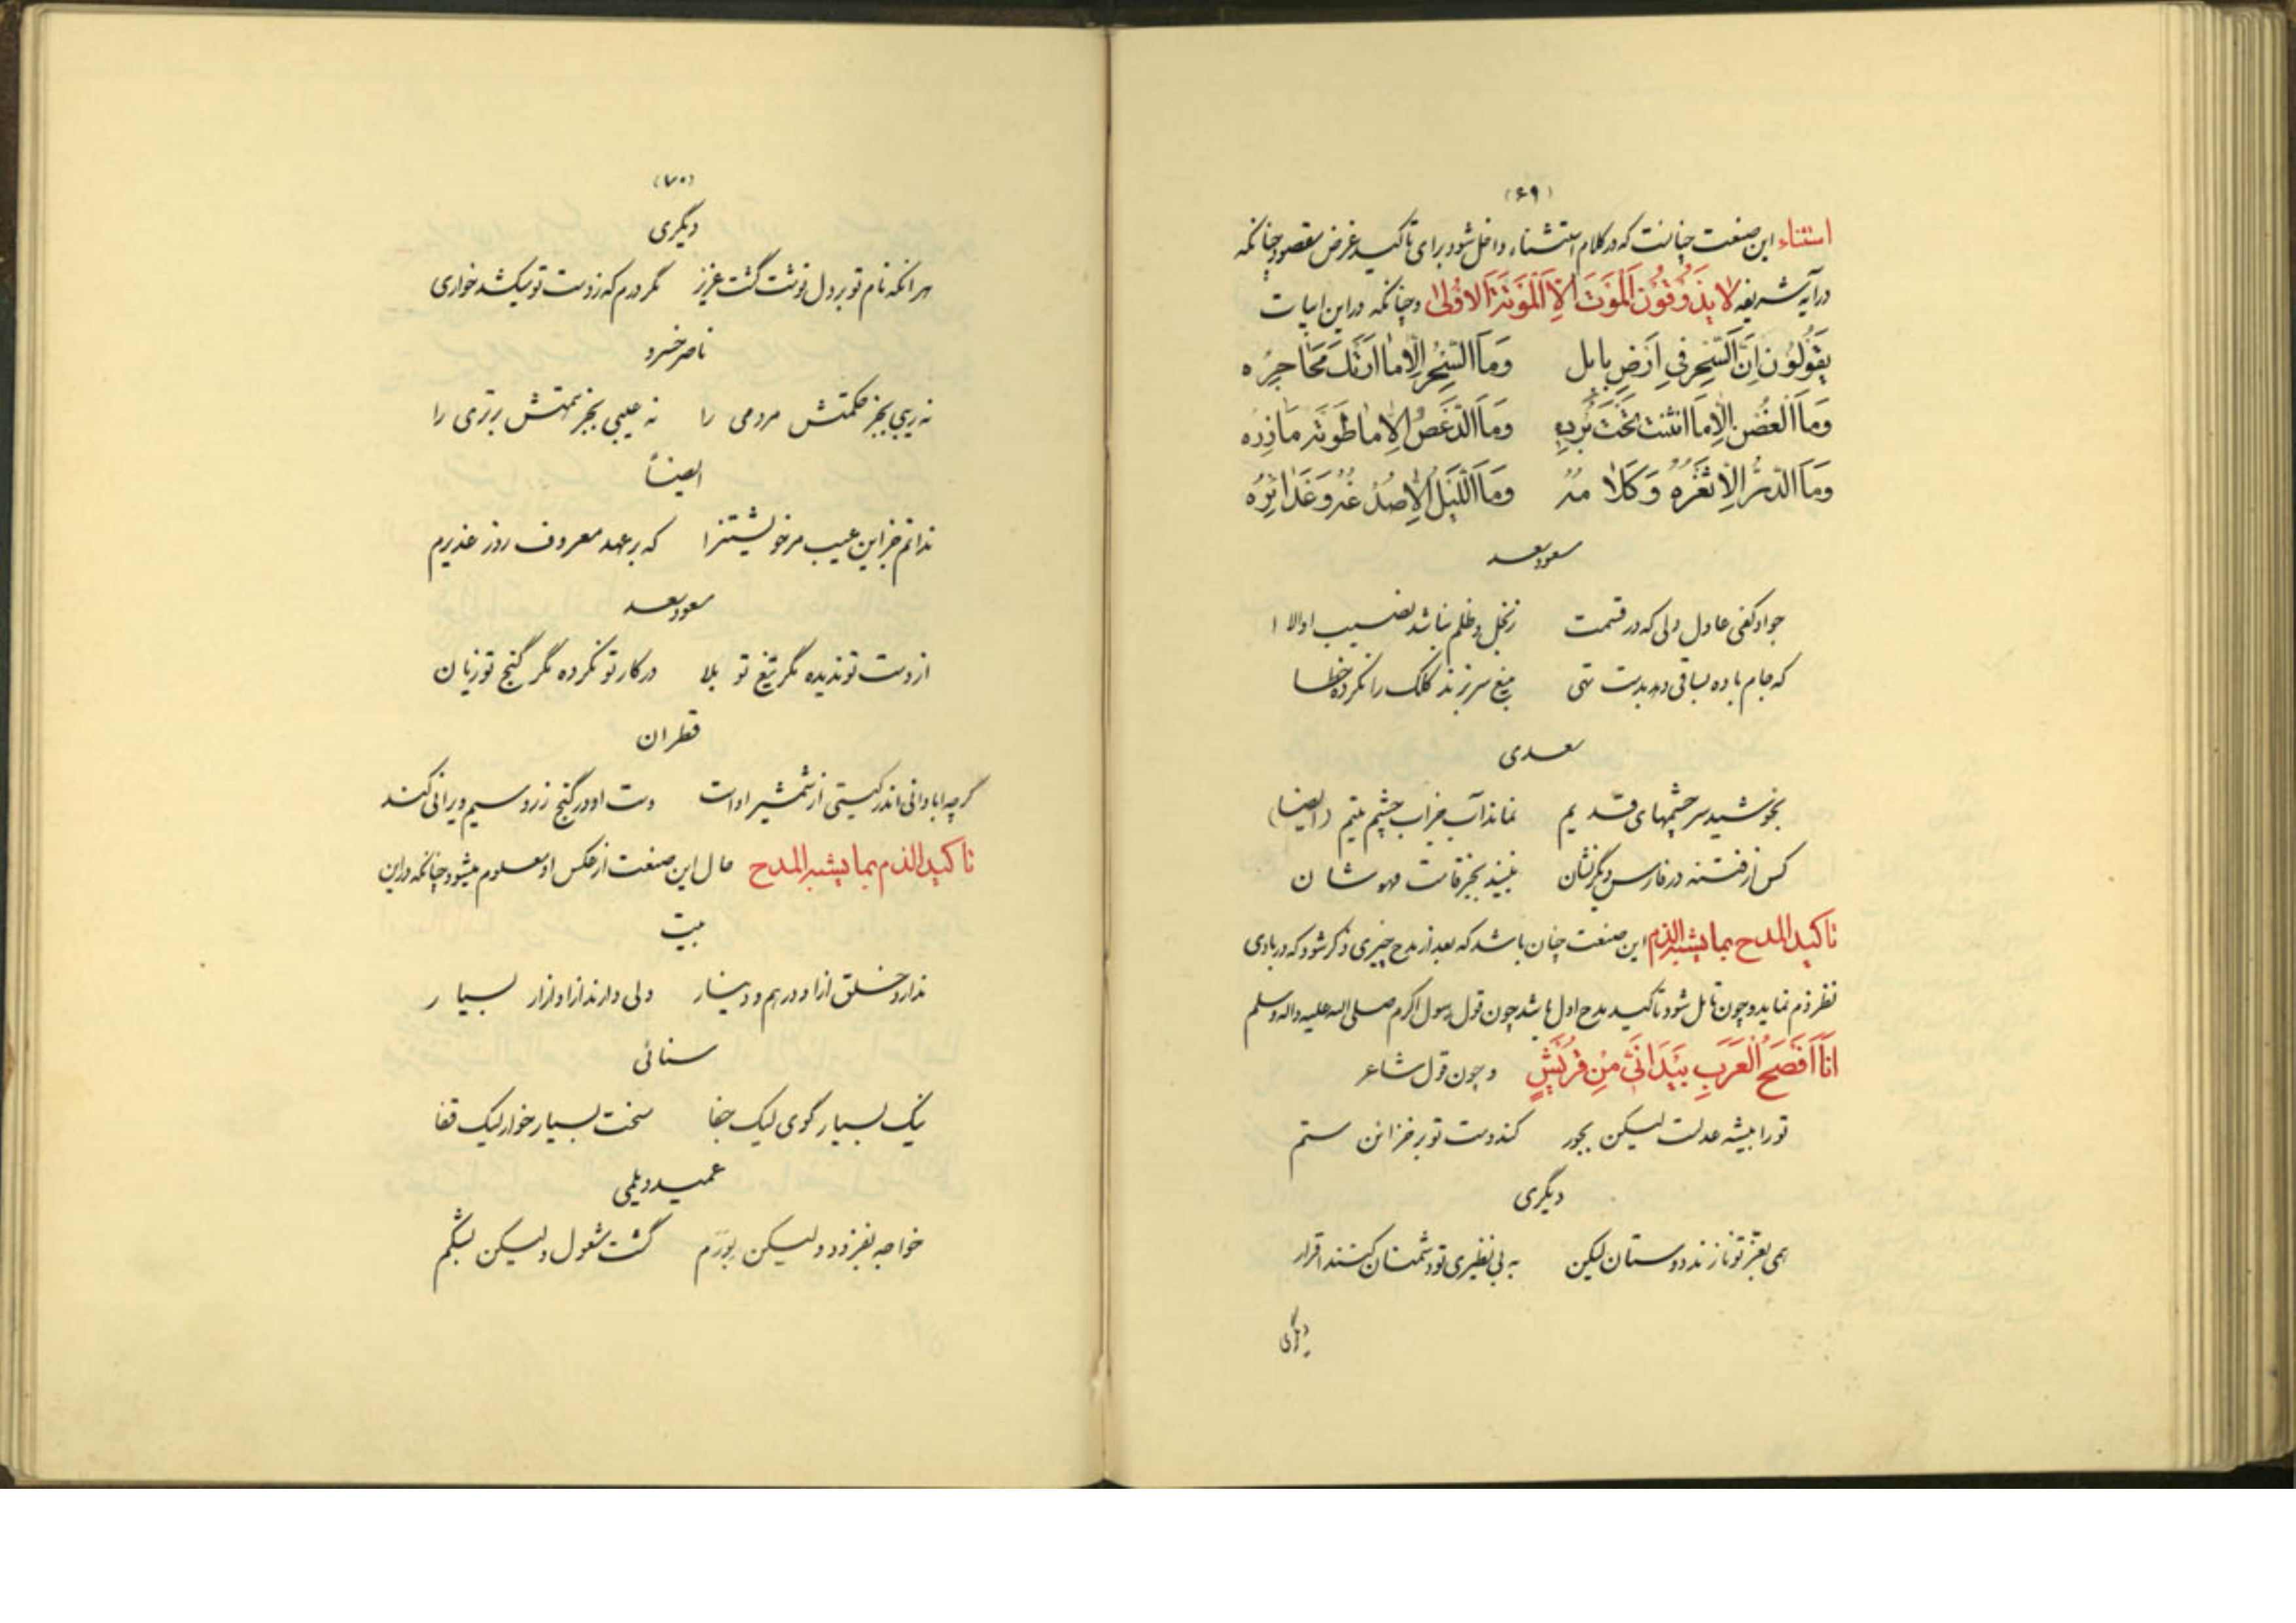 (۶۹)
استثناء این صنعت چنانست که در کلام استثناء داخل شود برای تاکید غرض مقصود چنانکه
در آیه شریفه لا یذوقون الموت الا الموتة الاولی و چنانکه در این ابیات
یقولون ان السحر فی ارض بابل وما السحر الا ما ارتک محاجره
وما الغصن الا ما انثنت تحت برده وما الدعص الا ما طوته مآزره
وما الدر الا ثغره وکلامه وما اللیل الا صدغه وغدائره
مسعود سعد
جواد کفی عادل دلی که در قسمت ز بخل و ظلم نباشد نصیب او الا
که جام باده بساقی دهد بدست تهی بتیغ سر بزند کلک را نکرده خطا
سعدی
بخوشید سرچشمهای قدیم نماند آب جز آب چشم یتیم (ایضا)
کس از فتنه در فارس دیگر نشان نبیند بجز قامت مهوشان
تاکید المدح بما یشبه الذم این صنعت چنان باشد که بعد از مدح چیزی ذکر شود که در بادی
نظر ذم نماید و چون تامل شود تاکید مدح اول باشد چون قول رسول اکرم صلی الله علیه واله وسلم
انا افصح العرب بید انی من قریش و چون قول شاعر
تو را پیشه عدلست لیکن بجور کند دست تو بر خزائن ستم
دیگری
همی بعز تو نازند دوستان لیکن به بی نظیری تو دشمنان کنند اقرار
دیگری
(۷۰)
دیگری
هر انکه نام تو بر دل نوشت گشت عزیز مگر درم که ز دست تو میکشد خواری
ناصر خسرو
نه ریبی بجز حکمتش مردمی را نه عیبی بجز همتش برتری را
ایضاً
ندانم جز این عیب مر خویشتنرا که بر عهد معروف روز غدیرم
مسعود سعد
از دست تو ندیده مگر تیغ تو بلا در کار تو نکرده مگر گنج تو زیان
قطران
گرچه ابادانی اندر گیتی از شمشیر اوست دست او در گنج زر و سیم ویرانی کند
تاکید الذم بما یشبه المدح حال این صنعت از عکس او معلوم میشود چنانکه در این
بیت
ندارد خلق ازا و درهم و دینار ولی دارند ازا و ازار بسیار
سنائی
نیک بسیار گوی لیک جفا سخت بسیار خوار لیک قفا
عمید دیلمی
خواجه بفزود ولیکن بورَم گشت مشغول ولیکن بشکم